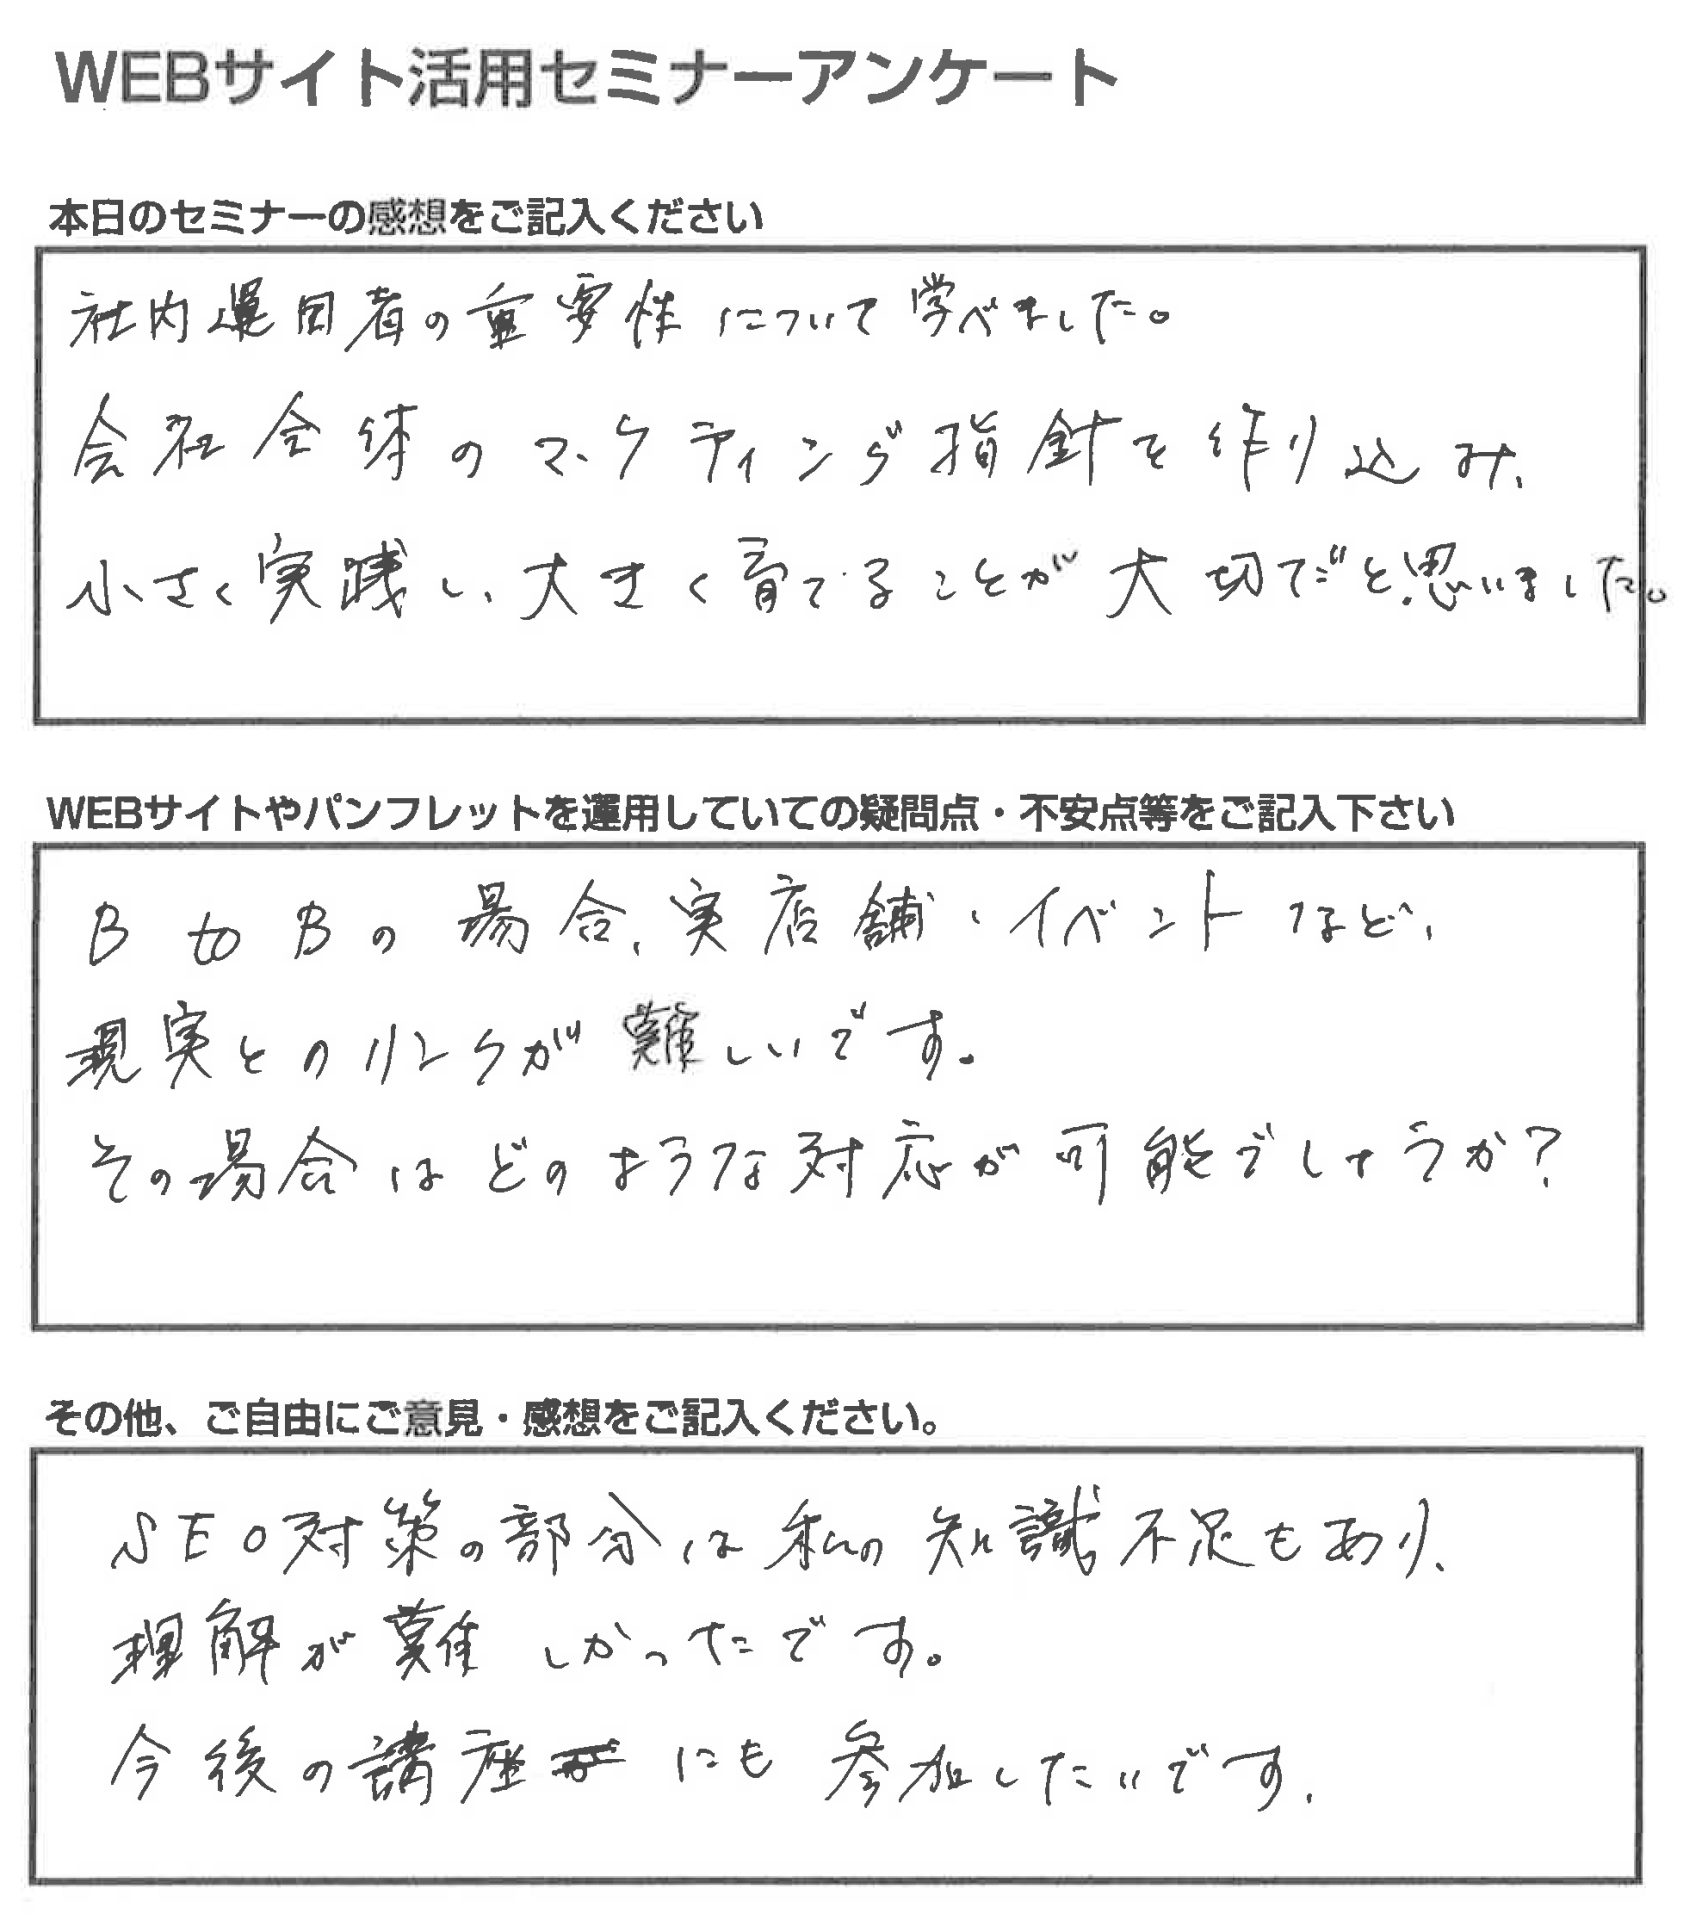 WEBサイト活用セミナーアンケート
本日のセミナーの感想をご記入ください
社内運用者の重要性について学べました。
会社全体のマーケティング指針を作り込み、
小さく実践し、大きく育てることが大切だと思いました。
WEBサイトやパンフレットを運用していての疑問点・不安点等をご記入下さい
B to Bの場合、実店舗・イベントなど、
現実とのリンクが難しいです。
その場合はどのような対応が可能でしょうか?
その他、ご自由にご意見・感想をご記入ください。
SEO対策の部分は私の知識不足もあり、
理解が難しかったです。
今後の講座にも参加したいです.